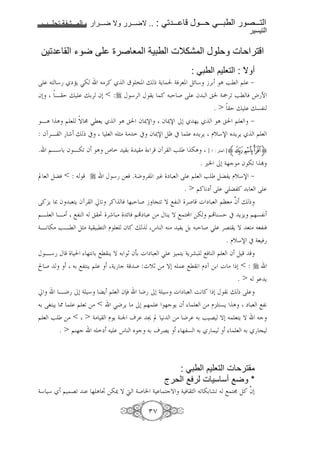 التصور الطبي حول قاعدتي : .. لاضرر ولا ضرار .. المشقة تجلب
التيسير
اقتراحات وحلول المشكلات الطبية المعاصرة على ضوء القاعدتين
أولا : التعليم الطبي :
- علم الطب هو أبرز وسائل المعرفة لحماية ذلك المخلوق الذي كرمه الله لكي يؤدي رسالته على
الأرض فالطب ترجمة لحق البدن على صاحبه كما يقول الرسول ﷺ : < إن لربك عليك حقا > ، وإن
لنفسك عليك حقاً > .
- والعلم الحق هو الذي يهدي إلى الإيمان ، والإيمان الحق هو الذي يعطي مجالاً للعلم وهذا هو
العلم الذي يريده الإسلام ، يريده علما في ظل الإيمان وفي خدمة مثله العليا ، وفي ذلك أشار القرآن :
وهكذا طلب القرآن قراءة مقيدة بقيد خاص وهو أن تكون باسم الله.
وهذا تكون موجهة إلى الخير .
- الإسلام يفضل طلب العلم على العبادة غير المفروضة. فعن رسول الله ﷺ قوله : < فضل العالم
على العابد كفضلي على أدناكم > .
وذلك أنَّ معظم العبادات قاصرة النفع لا تتجاوز صاحبها فالذاكر وتالي القرآن يتعبدون بما يزكى
أنفسهم ويزيد في حسناتهم ولكن المجتمع لا ينال من عبادتهم فائدة مباشرة تحقق له النفع ، أما العلم
فنفعه متعد لا يقتصر على صاحبه بل يفيد منه الناس، لذلك كان للعلوم التطبيقية مثل الطب مكانة
رفيعة في الإسلام .
وقد قيل أن العلم النافع للبشرية يتميز على العبادات بأن ثوابه لا ينقطع بانتهاء الحياة قال رسول
الله ﷺ : < إذا مات ابن آدم انقطع عمله إلا من ثلاث: صدقة جارية، أو علم ينتفع به ، أو ولد صالح
يدعو له > .
وعلى ذلك نقول إذا كانت العبادات وسيلة إلى رضا الله فإن العلم أيضا وسيلة إلى رضا الله وإلى
نفع العباد ، وهذا يستلزم من العلماء أن يوجهوا علمهم إلى ما يرضي الله < من تعلم علما مما يبتغى به
وجه الله لا يتعلمه إلا ليصيب به عرضا من الدنيا لم يجد عرف الجنة يوم القيامة > ، < من طلب العلم
ليجاري به العلماء أو ليماري به السفهاء أو يصرف به وجوه الناس عليه أدخله الله جهنم > .
مقترحات التعليم الطبي :
* وضع أساسيات لرفع الحرج
إنّ كل مجتمع له تشابكاته الثقافية والاجتماعية الخاصة التي لا يمكن تجاهلها عند تصميم أي سياسة
٣٧